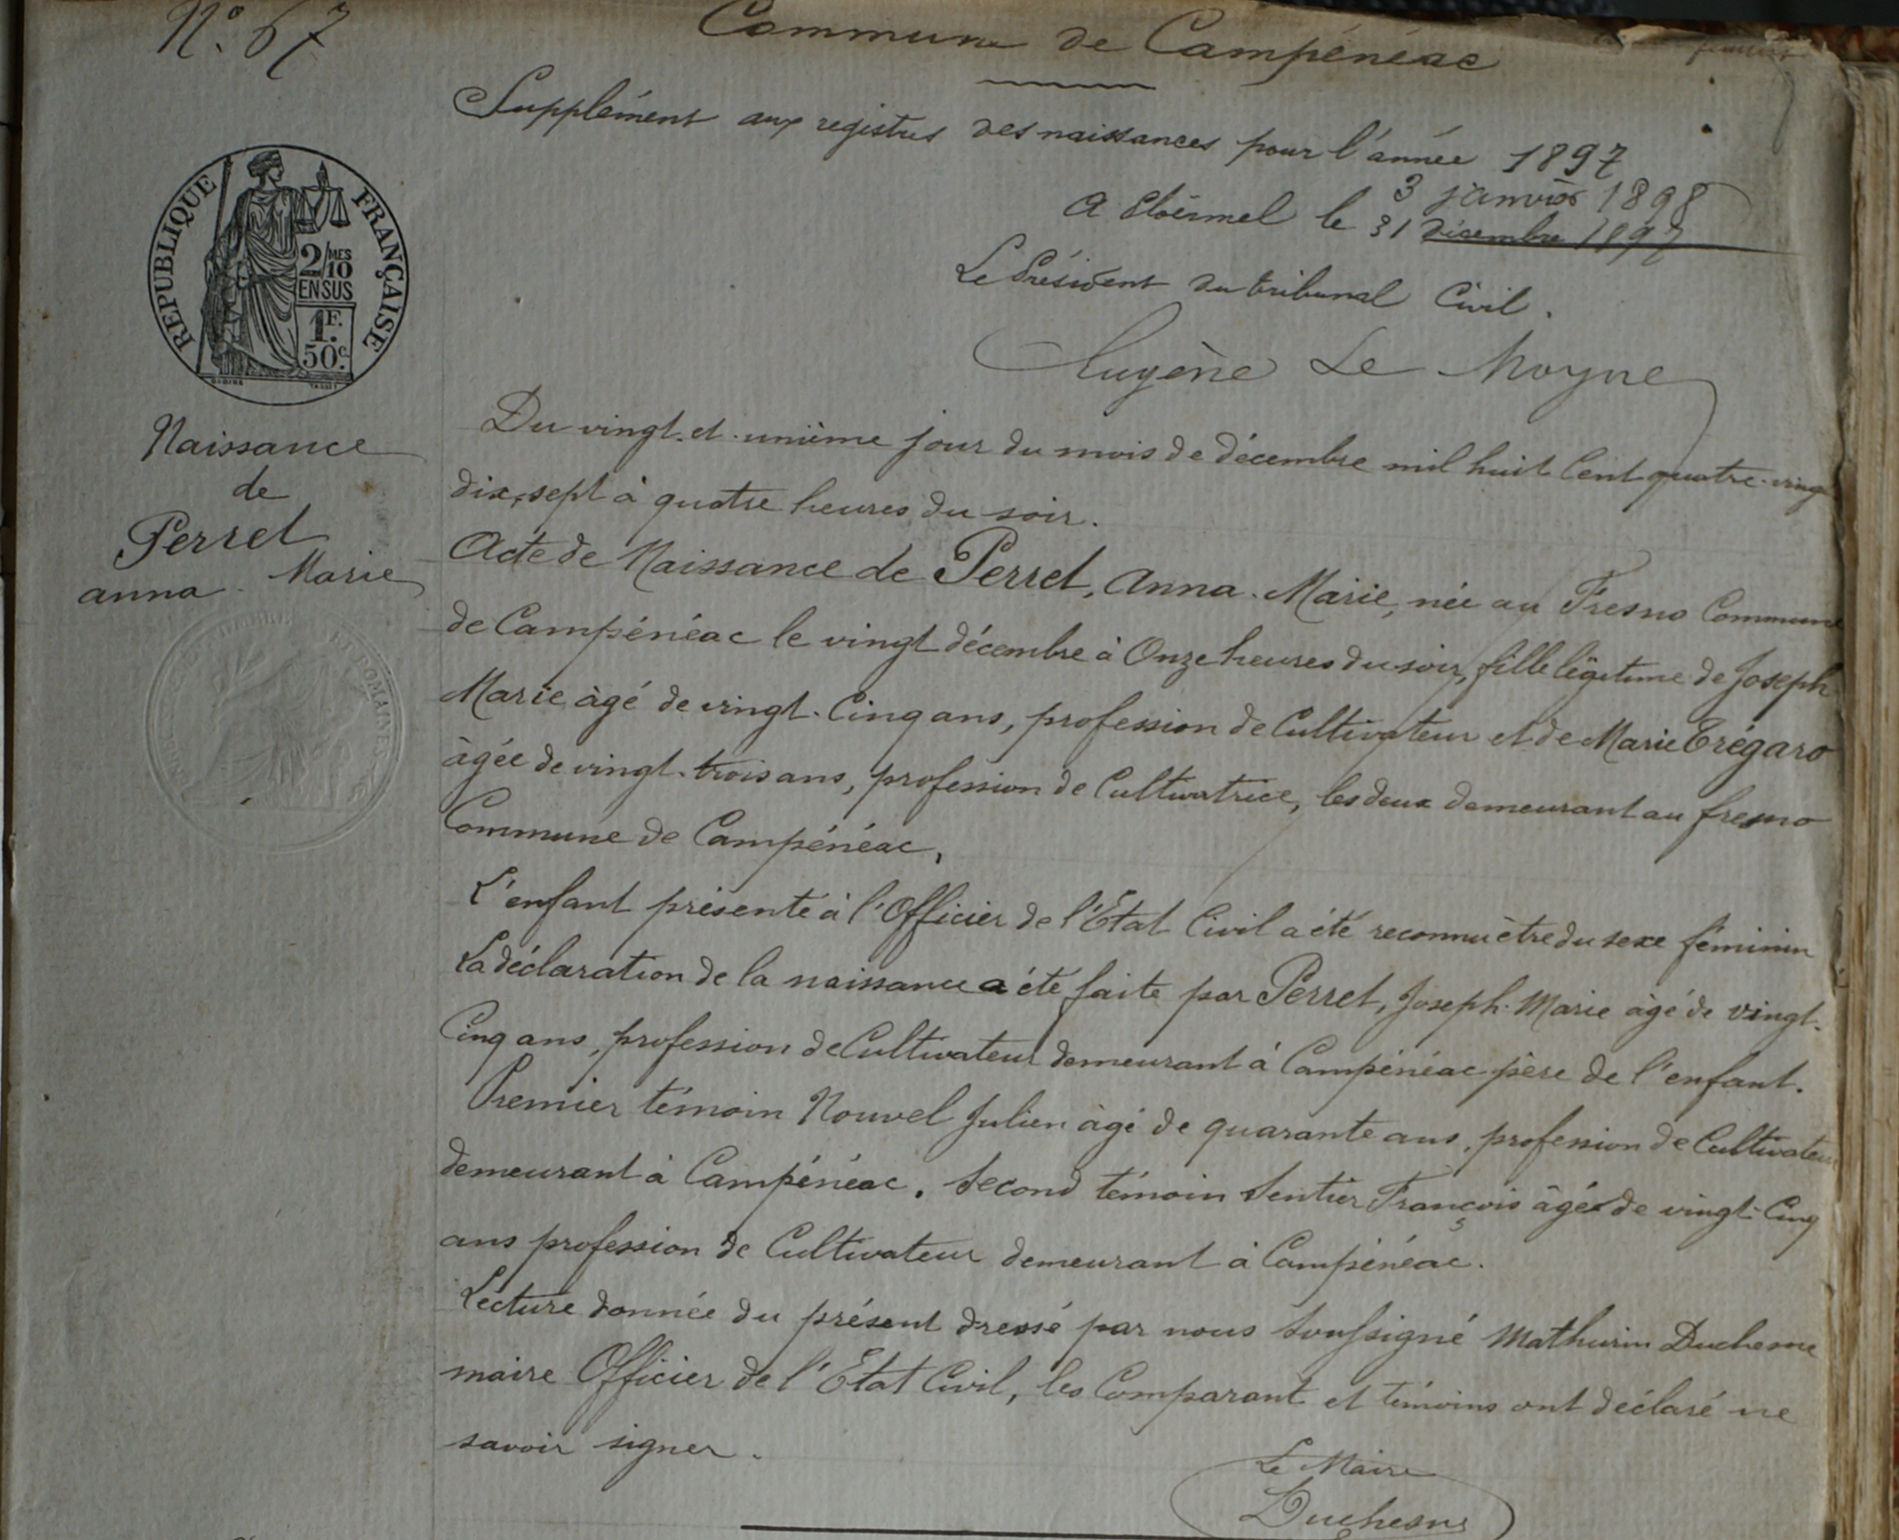 N° 67
Commune de Campénéac
Supplément aux registres des naissances pour l'année 1897
3 janvier 1898
A Ploërmel le 31 décembre 1897
Le Président du tribunal Civil.
Eugène Le Moyne
REPUBLIQUE FRANÇAISE
2/10 MES
EN SUS
1F.
50c.
Naissance
de
Perret
anna Marie
Du vingt et unième jour du mois de décembre mil huit Cent quatre-vingt
dix-sept à quatre heures du soir.
Acte de Naissance de Perret, Anna-Marie, née au Fresno Commune
de Campénéac le vingt décembre à Onze heures du soir, fille légitime de Joseph
Marie âgé de vingt-Cinq ans, profession de Cultivateur et de Marie Trégaro
âgée de vingt-trois ans, profession de Cultivatrice, les deux demeurant au fresno
Commune de Campénéac,
L'enfant présenté à l'Officier de l'Etat Civil a été reconnu être du sexe féminin
La déclaration de la naissance a été faite par Perret, Joseph-Marie âgé de vingt-
Cinq ans, profession de Cultivateur demeurant à Campénéac père de l'enfant.
Premier témoin Nouvel Julien âgé de quarante ans, profession de Cultivateur
demeurant à Campénéac. Second témoin Sentier François âgé de vingt-Cinq
ans profession de Cultivateur demeurant à Campénéac.
Lecture donnée du présent dressé par nous Soussigné Mathurin Duchesne
maire Officier de l'Etat Civil, les Comparant et témoins ont déclaré ne
savoir signer.
Le Maire
Duchesne